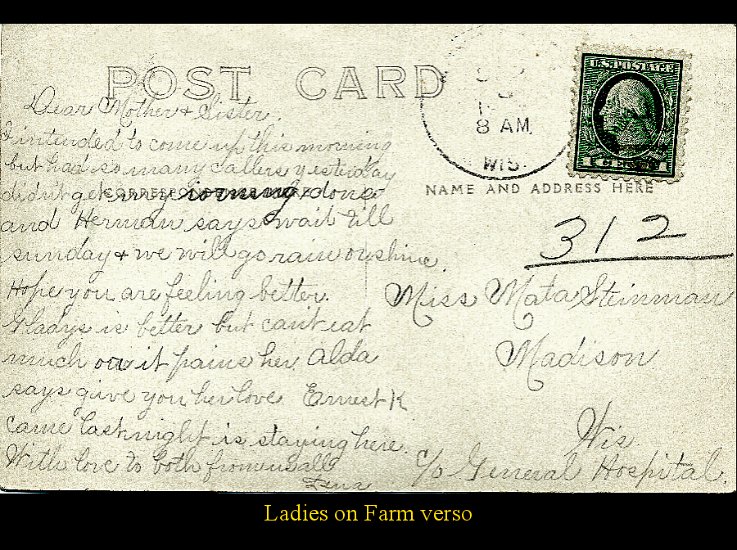 POST CARD
Dear Mother & Sister.
I intended to come up this morning
but had so many callers yesterday
didn't get my ironing done
and Herman says wait till
sunday & we will go rain or shine.
Hope you are feeling better.
Gladys is better but can't eat
much or it pains her. Alda
says give you her love Ernest K
came last night is staying here.
With love to both from us all
Lena
8 AM
WIS.
NAME AND ADDRESS HERE
312
Miss Mata Steinman
Madison
Wis
c/o General Hospital.
Ladies on Farm verso